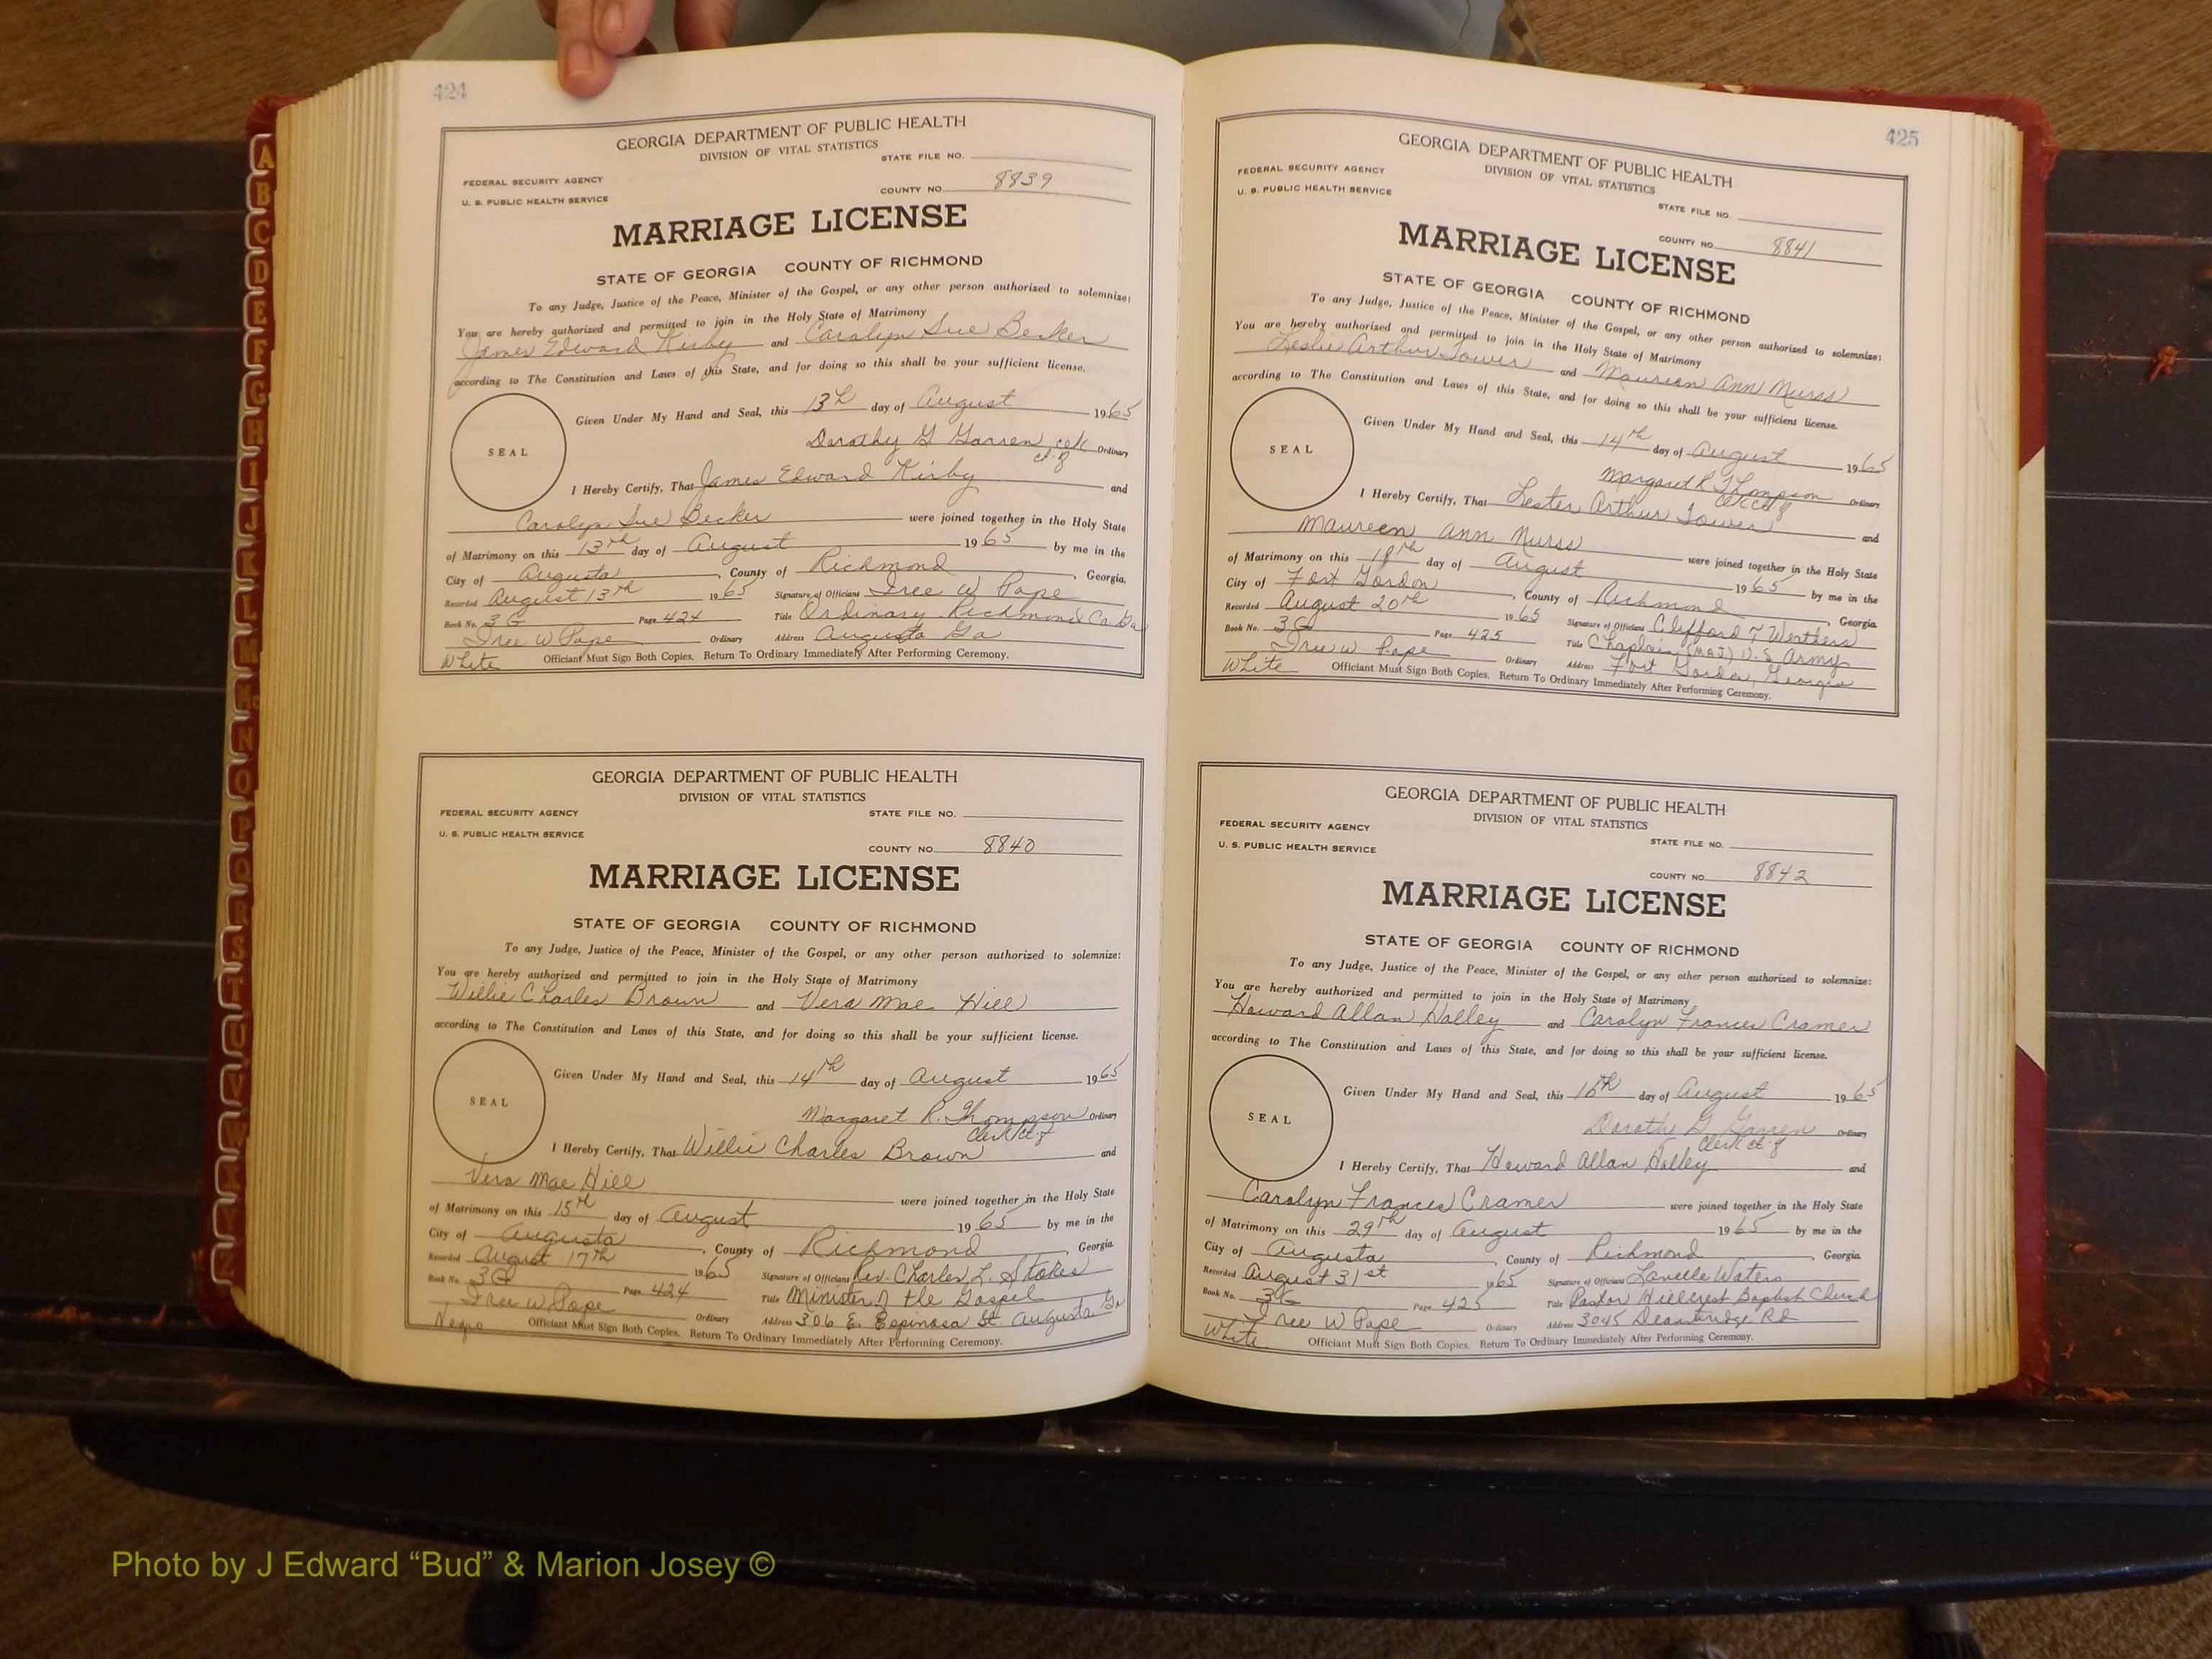 424
GEORGIA DEPARTMENT OF PUBLIC HEALTH
DIVISION OF VITAL STATISTICS
STATE FILE NO.
FEDERAL SECURITY AGENCY
U. S. PUBLIC HEALTH SERVICE
COUNTY NO. 8839
MARRIAGE LICENSE
STATE OF GEORGIA COUNTY OF RICHMOND
To any Judge, Justice of the Peace, Minister of the Gospel, or any other person authorized to solemnize:
You are hereby authorized and permitted to join in the Holy State of Matrimony
James Edward Kirby and Carolyn Sue Becker
according to The Constitution and Laws of this State, and for doing so this shall be your sufficient license.
Given Under My Hand and Seal, this 13th day of August 1965
SEAL
Dorothy G Garren, Ordinary
I Hereby Certify, That James Edward Kirby and
Carolyn Sue Becker were joined together in the Holy State
of Matrimony on this 13th day of August 1965 by me in the
City of Augusta, County of Richmond, Georgia.
Recorded August 13th 1965 Signature of Officiant Iree W Pope
Book No. 3G Page 424 Title Ordinary Richmond Co Ga
Iree W Pope Ordinary Address Augusta Ga
White Officiant Must Sign Both Copies. Return To Ordinary Immediately After Performing Ceremony.
GEORGIA DEPARTMENT OF PUBLIC HEALTH
DIVISION OF VITAL STATISTICS
FEDERAL SECURITY AGENCY STATE FILE NO.
U. S. PUBLIC HEALTH SERVICE
COUNTY NO. 8840
MARRIAGE LICENSE
STATE OF GEORGIA COUNTY OF RICHMOND
To any Judge, Justice of the Peace, Minister of the Gospel, or any other person authorized to solemnize:
You are hereby authorized and permitted to join in the Holy State of Matrimony
Willie Charles Brown and Vera Mae Hill
according to The Constitution and Laws of this State, and for doing so this shall be your sufficient license.
Given Under My Hand and Seal, this 14th day of August 1965
SEAL
Margaret R. Thompson Ordinary
Clerk
I Hereby Certify, That Willie Charles Brown and
Vera Mae Hill were joined together in the Holy State
of Matrimony on this 15th day of August 1965 by me in the
City of Augusta, County of Richmond, Georgia.
Recorded August 17th 1965 Signature of Officiant Rev. Charles L. Stokes
Book No. 3G Page 424 Title Minister of the Gospel
Iree W Pope Ordinary Address 306 E. Espinosa St. Augusta Ga
Negro Officiant Must Sign Both Copies. Return To Ordinary Immediately After Performing Ceremony.
425
GEORGIA DEPARTMENT OF PUBLIC HEALTH
DIVISION OF VITAL STATISTICS
FEDERAL SECURITY AGENCY
U. S. PUBLIC HEALTH SERVICE
STATE FILE NO.
COUNTY NO. 8841
MARRIAGE LICENSE
STATE OF GEORGIA COUNTY OF RICHMOND
To any Judge, Justice of the Peace, Minister of the Gospel, or any other person authorized to solemnize:
You are hereby authorized and permitted to join in the Holy State of Matrimony
Leslie Arthur Tower and Maureen Ann Murss
according to The Constitution and Laws of this State, and for doing so this shall be your sufficient license.
Given Under My Hand and Seal, this 14th day of August 1965
SEAL
Margaret R Thompson Ordinary
I Hereby Certify, That Lester Arthur Tower and
Maureen Ann Murss were joined together in the Holy State
of Matrimony on this 18th day of August 1965 by me in the
City of Fort Gordon, County of Richmond, Georgia.
Recorded August 20th 1965 Signature of Officiant Clifford T Weathers
Book No. 3G Page 425 Title Chaplain (MAJ) U.S Army
Iree W Pope Ordinary Address Fort Gordon, Georgia
White Officiant Must Sign Both Copies. Return To Ordinary Immediately After Performing Ceremony.
GEORGIA DEPARTMENT OF PUBLIC HEALTH
DIVISION OF VITAL STATISTICS
FEDERAL SECURITY AGENCY
U. S. PUBLIC HEALTH SERVICE
STATE FILE NO.
COUNTY NO. 8842
MARRIAGE LICENSE
STATE OF GEORGIA COUNTY OF RICHMOND
To any Judge, Justice of the Peace, Minister of the Gospel, or any other person authorized to solemnize:
You are hereby authorized and permitted to join in the Holy State of Matrimony
Howard Allan Holley and Carolyn Frances Cramer
according to The Constitution and Laws of this State, and for doing so this shall be your sufficient license.
Given Under My Hand and Seal, this 16th day of August 1965
SEAL
Dorothy G. Garren Ordinary
Clerk
I Hereby Certify, That Howard Allan Holley and
Carolyn Frances Cramer were joined together in the Holy State
of Matrimony on this 29th day of August 1965 by me in the
City of Augusta, County of Richmond, Georgia.
Recorded August 31st 1965 Signature of Officiant Lavelle Waters
Book No. 3G Page 425 Title Pastor Hillcrest Baptist Church
Iree W Pope Ordinary Address 3045 Deanbridge Rd
White Officiant Must Sign Both Copies. Return To Ordinary Immediately After Performing Ceremony.
A
B
C
D
E
F
G
H
I
J
K
L
M
Mc
N
O
P
Q
R
S
T
U
V
W
X
Y
Z
Photo by J Edward “Bud” & Marion Josey ©